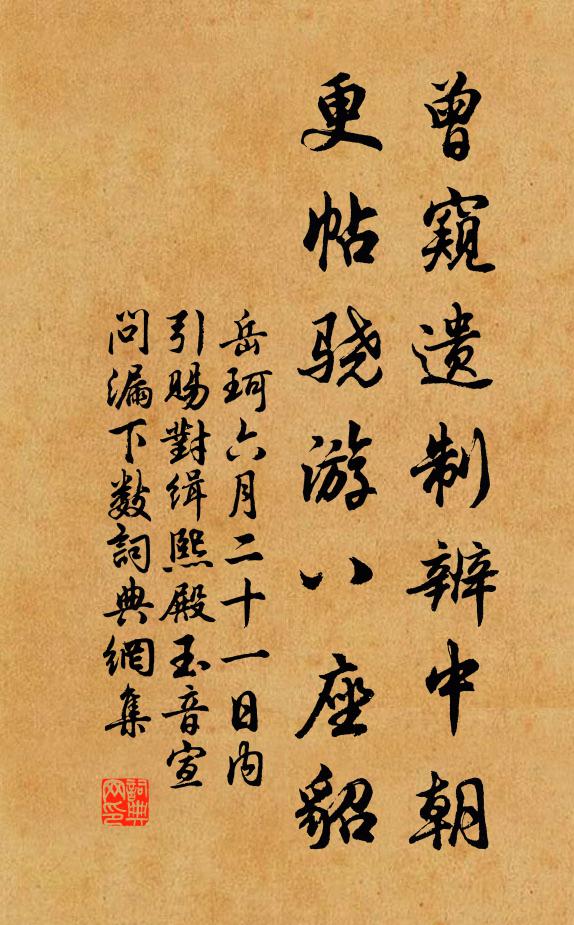 曾窺遺制辨中朝
更帖骁游八座貂
岳珂六月二十一日内
引賜對緝熙殿玉音宣
問漏下數詞典網集
詞典網印